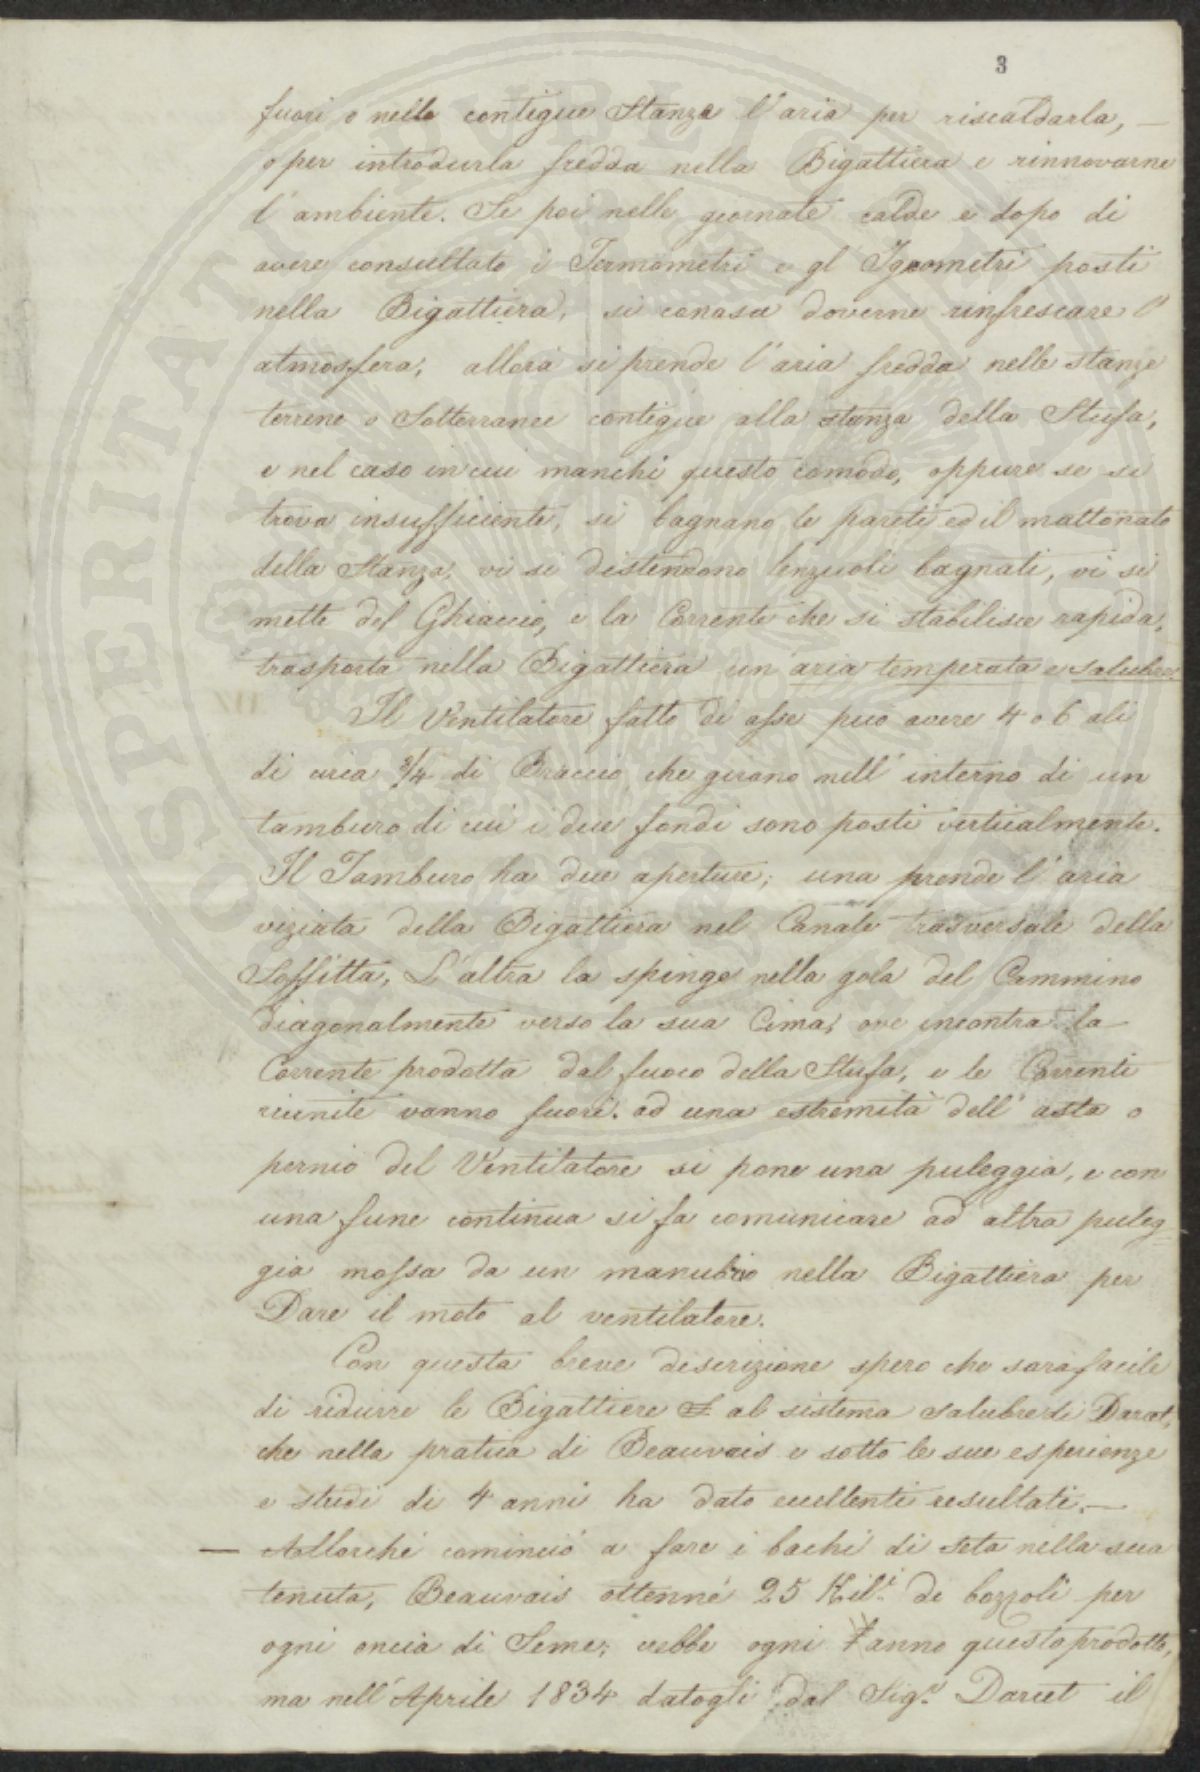 3
fuori o nelle contigue Stanze l'aria per riscaldarla, —
o per introdurla fredda nella Bigattiera e rinnovarne
l'ambiente. Se poi nelle giornate calde e dopo di
avere consultato i Termometri e gl'Igrometri posti
nella Bigattiera, si conosce doverne rinfrescare l'
atmosfera, allora si prende l'aria fredda nelle stanze
terrene o Sotterranee contigue alla stanza della Stufa,
e nel caso in cui manchi questo comodo, oppure se si
trova insufficiente, si bagnano le pareti ed il mattonato
della Stanza, vi si distendono lenzuoli bagnati, vi si
mette del Ghiaccio, e la Corrente che si stabilisce rapida,
trasporta nella Bigattiera un'aria temperata e salubre.
Il Ventilatore fatto di asse può avere 4 o 6 ali
di circa 3/4 di Braccio che girano nell'interno di un
tamburo di cui i due fondi sono posti verticalmente.
Il Tamburo ha due aperture; una prende l'aria
viziata della Bigattiera nel Canale trasversale della
Soffitta, L'altra la spinge nella gola del Cammino
diagonalmente verso la sua Cima, ove incontra la
Corrente prodotta dal fuoco della Stufa, e le Correnti
riunite vanno fuori. ad una estremità dell'asta o
pernio del Ventilatore si pone una puleggia, e con
una fune continua si fa comunicare ad altra puleg-
gia mossa da un manubrio nella Bigattiera per
Dare il moto al ventilatore.
Con questa breve descrizione spero che sarà facile
di ridurre le Bigattiere al sistema salubre di Darcet,
che nella pratica di Beauvais e sotto le sue esperienze
e studi di 4 anni ha dato eccellenti resultati. —
— Allorché cominciò a fare i bachi di seta nella sua
tenuta, Beauvais ottenne 25 Kil.i di bozzoli per
ogni oncia di Seme; ebbe ogni anno questo prodotto,
ma nell'Aprile 1834 datogli dal Sig.r Darcet il
PROSPERITATI PUBLICAE AUGENDAE